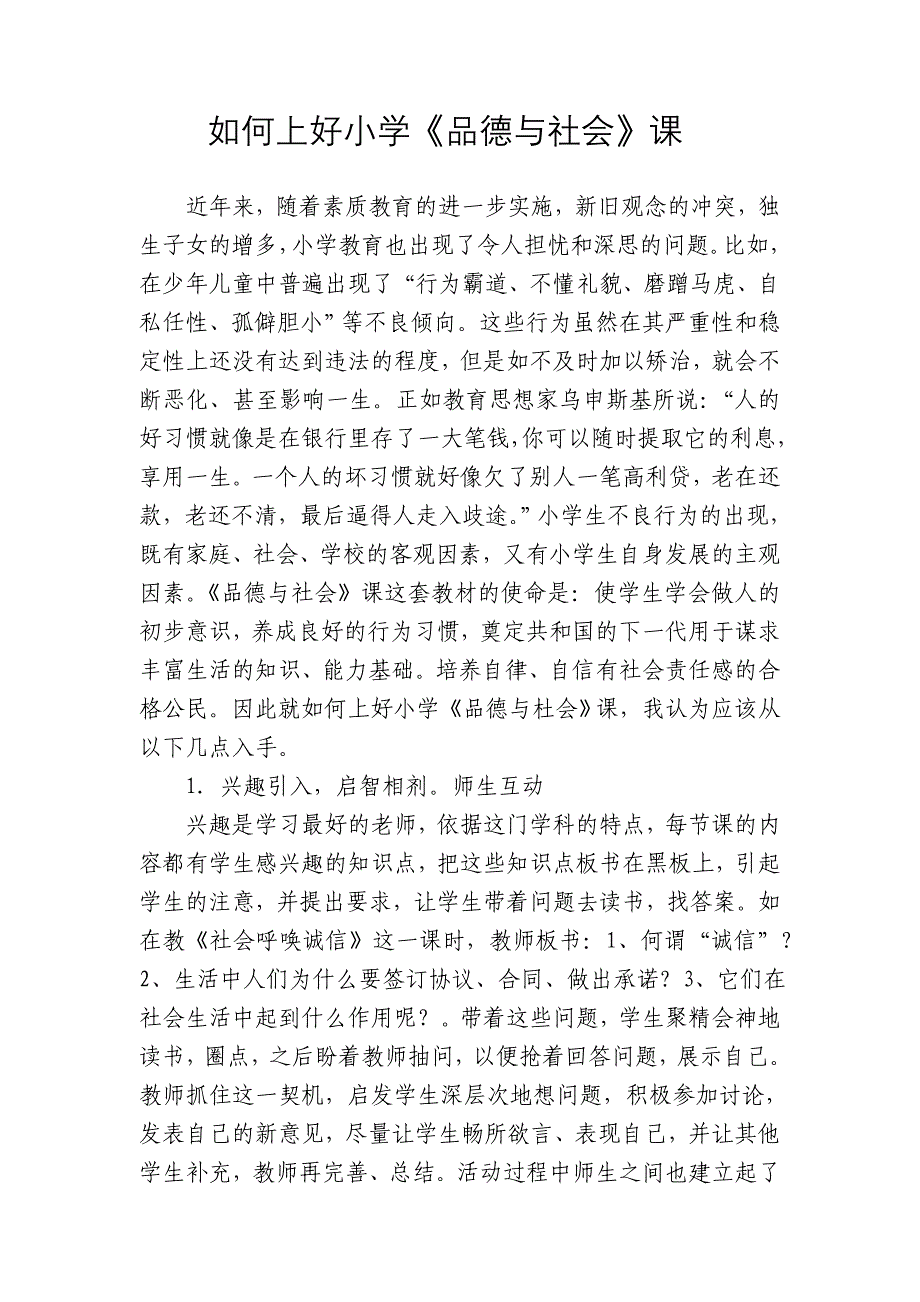 如何上好小学《品德与社会》课
近年来，随着素质教育的进一步实施，新旧观念的冲突，独
生子女的增多，小学教育也出现了令人担忧和深思的问题。比如，
在少年儿童中普遍出现了“行为霸道、不懂礼貌、磨蹭马虎、自
私任性、孤僻胆小”等不良倾向。这些行为虽然在其严重性和稳
定性上还没有达到违法的程度，但是如不及时加以矫治，就会不
断恶化、甚至影响一生。正如教育思想家乌申斯基所说：“人的
好习惯就像是在银行里存了一大笔钱，你可以随时提取它的利息，
享用一生。一个人的坏习惯就好像欠了别人一笔高利贷，老在还
款，老还不清，最后逼得人走入歧途。”小学生不良行为的出现，
既有家庭、社会、学校的客观因素，又有小学生自身发展的主观
因素。《品德与社会》课这套教材的使命是：使学生学会做人的
初步意识，养成良好的行为习惯，奠定共和国的下一代用于谋求
丰富生活的知识、能力基础。培养自律、自信有社会责任感的合
格公民。因此就如何上好小学《品德与杜会》课，我认为应该从
以下几点入手。
1．兴趣引入，启智相剂。师生互动
兴趣是学习最好的老师，依据这门学科的特点，每节课的内
容都有学生感兴趣的知识点，把这些知识点板书在黑板上，引起
学生的注意，并提出要求，让学生带着问题去读书，找答案。如
在教《社会呼唤诚信》这一课时，教师板书：1、何谓“诚信”？
2、生活中人们为什么要签订协议、合同、做出承诺？3、它们在
社会生活中起到什么作用呢？。带着这些问题，学生聚精会神地
读书，圈点，之后盼着教师抽问，以便抢着回答问题，展示自己。
教师抓住这一契机，启发学生深层次地想问题，积极参加讨论，
发表自己的新意见，尽量让学生畅所欲言、表现自己，并让其他
学生补充，教师再完善、总结。活动过程中师生之间也建立起了